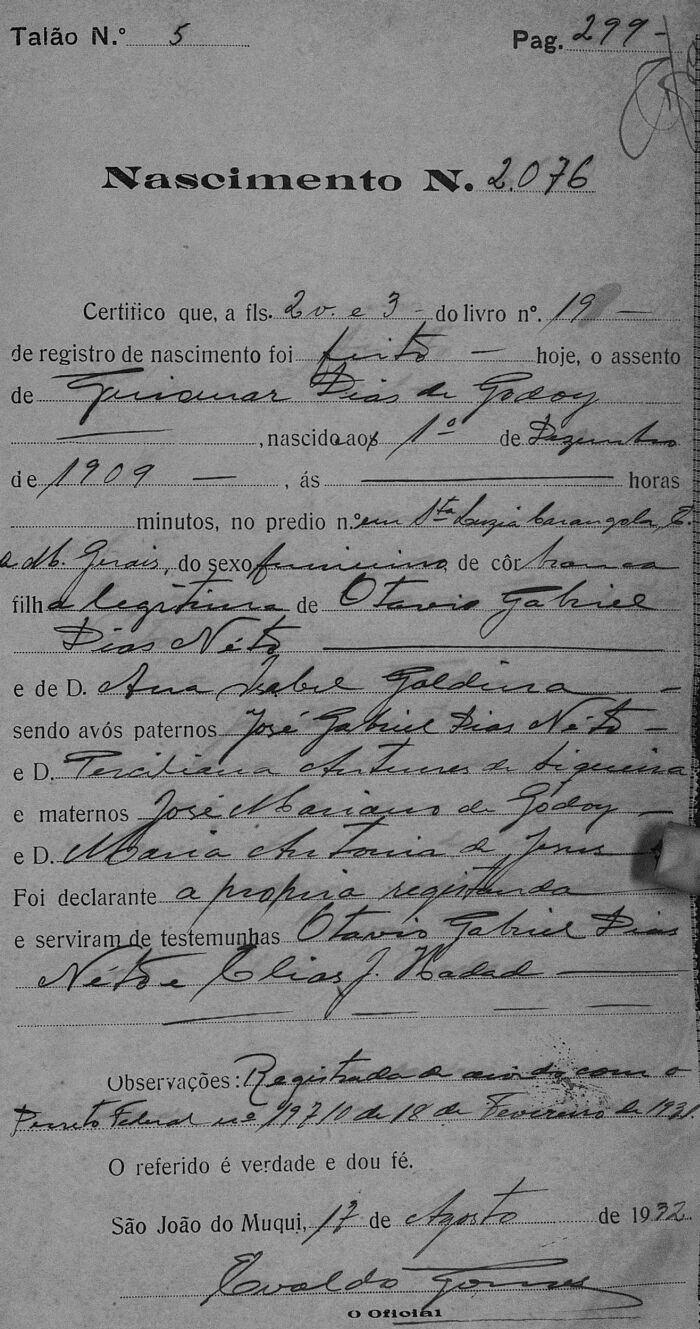 Talão N.º 5 Pag. 299-
Nascimento N. 2.076
Certifico que, a fls. 2 v. e 3 - do livro nº. 19 —
de registro de nascimento foi feito — hoje, o assento
de Guiomar Dias de Godoy
— , nascida aos 1º de Dezembro
de 1909 — , ás — horas
minutos, no predio n.º em Sta Luzia Carangola, E.
de M. Gerais, do sexo feminino de côr branca
filha legitima de Otavio Gabriel
Dias Néto —
e de D. Ana Isabel Galdina -
sendo avós paternos José Gabriel Dias Néto -
e D. Terciliana Antunes de Siqueira
e maternos José Mariano de Godoy —
e D. Maria Antonia de Jesus
Foi declarante a propria registanda
e serviram de testemunhas Otavio Gabriel Dias
Néto e Elias J. Hadad —
Observações: Registrada de acordo com o
Decreto Federal nº 19710 de 18 de Fevereiro de 1931.
O referido é verdade e dou fé.
São João do Muqui, 17 de Agosto de 1932
Evaldo Gomes
O Oficial